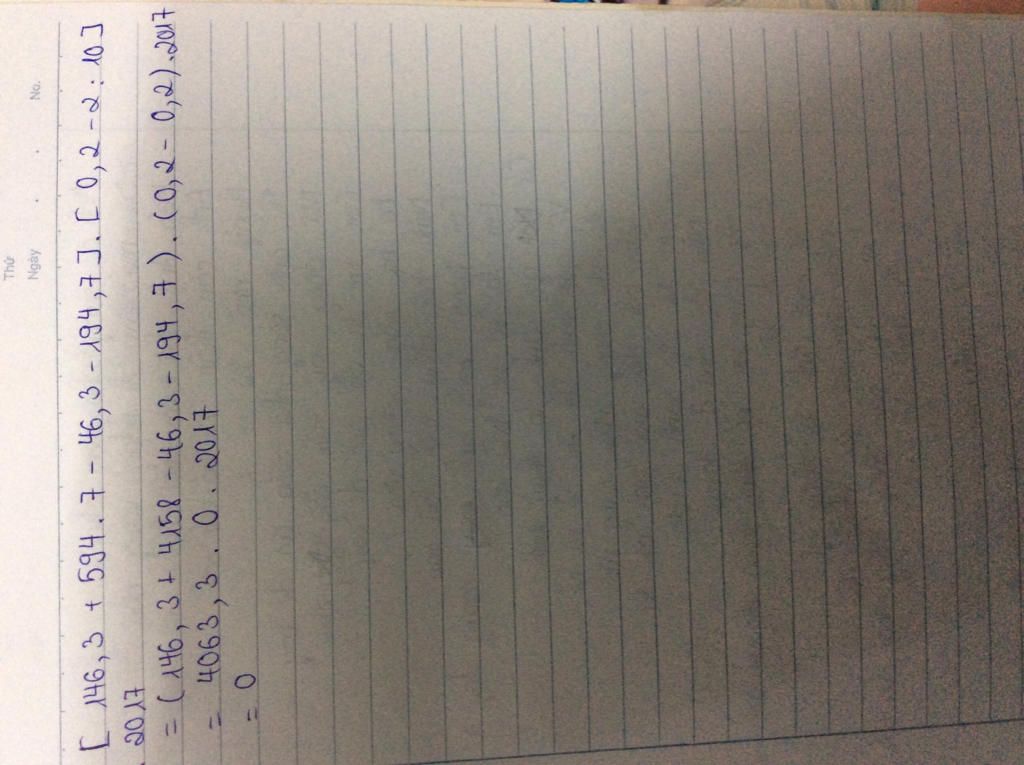 Thứ
Ngày . . No.
[ 146,3 + 594.7 - 46,3 - 194,7 ] . [ 0,2 - 2 : 10 ]
. 2017
= ( 146,3 + 4158 - 46,3 - 194,7 ) . ( 0,2 - 0,2 ) . 2017
= 4063,3 . 0 . 2017
= 0